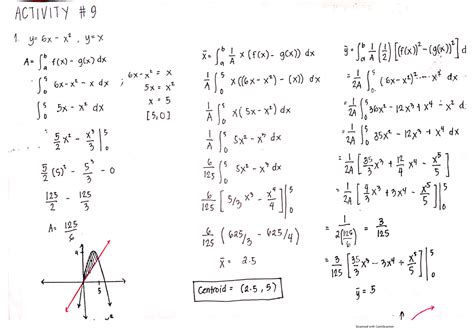 ACTIVITY #9
1. y = 6x - x² , y = x
A = ∫ₐᵇ f(x) - g(x) dx
∫₀⁵ 6x - x² - x dx ; 6x - x² = x
5x = x²
∫₀⁵ 5x - x² dx
x = 5
[5,0]
5/2 x² - x³/3 |₀⁵
5/2 (5)² - 5³/3 - 0
125/2 - 125/3
A = 125/6
5
x̄ = ∫ₐᵇ 1/A x (f(x) - g(x)) dx
1/A ∫₀⁵ x ((6x - x²) - (x)) dx
1/A ∫₀⁵ x (5x - x²) dx
1/A ∫₀⁵ 5x² - x³ dx
6/125 ∫₀⁵ 5x² - x³ dx
6/125 [ 5/3 x³ - x⁴/4 ] |₀⁵
6/125 ( 625/3 - 625/4 )
x̄ = 2.5
Centroid = (2.5, 5)
ȳ = ∫ₐᵇ 1/A (1/2) [(f(x))² - (g(x))²] dx
= 1/2A ∫₀⁵ (6x - x²)² - x² dx
= 1/2A ∫₀⁵ 36x² - 12x³ + x⁴ - x² dx
= 1/2A ∫₀⁵ 35x² - 12x³ + x⁴ dx
= 1/2A [ 35/3 x³ + 12/4 x⁴ - x⁵/5 ]
= 1/2A [ x³ + 3x⁴ - x⁵/5 ] |₀⁵
1/2(125/6) = 3/125
= 3/125 [ 35/3 x³ - 3x⁴ + x⁵/5 ] |₀⁵
ȳ = 5
Scanned with CamScanner